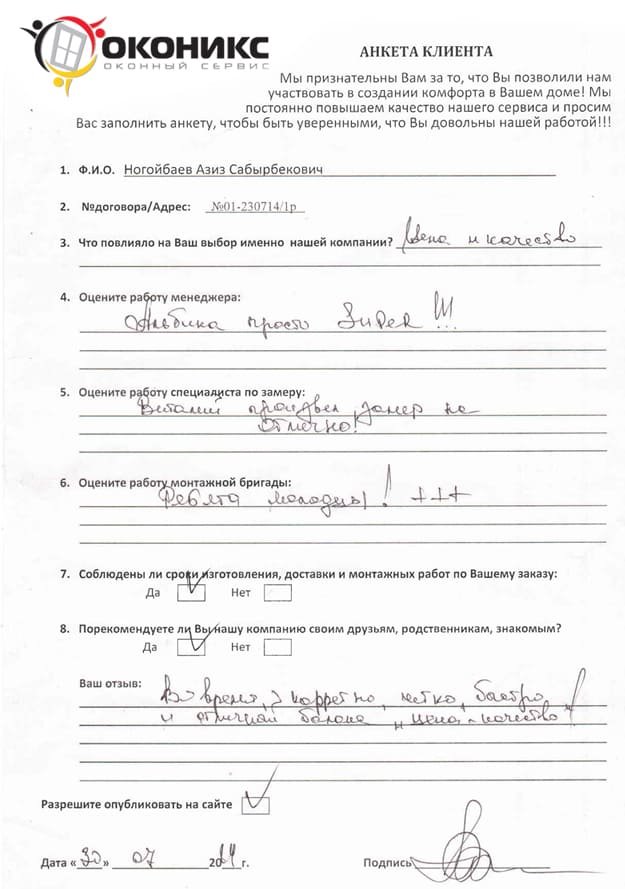 ОКОНИКС
ОКОННЫЙ СЕРВИС
АНКЕТА КЛИЕНТА
Мы признательны Вам за то, что Вы позволили нам
участвовать в создании комфорта в Вашем доме! Мы
постоянно повышаем качество нашего сервиса и просим
Вас заполнить анкету, чтобы быть уверенными, что Вы довольны нашей работой!!!
1. Ф.И.О. Ногойбаев Азиз Сабырбекович
2. №договора/Адрес: №01-230714/1р
3. Что повлияло на Ваш выбор именно нашей компании? Цена и качество
4. Оцените работу менеджера:
Альбина просто SUPER !!!
5. Оцените работу специалиста по замеру:
Виталий произвел замер на
Отлично!
6. Оцените работу монтажной бригады:
Ребята молодцы! +++
7. Соблюдены ли сроки изготовления, доставки и монтажных работ по Вашему заказу:
Да Нет
8. Порекомендуете ли Вы нашу компанию своим друзьям, родственникам, знакомым?
Да Нет
Ваш отзыв: Во время, корретно, четко, быстро
и отличная "цена-качество"!
Разрешите опубликовать на сайте
Дата «30» 07 2014г. Подпись